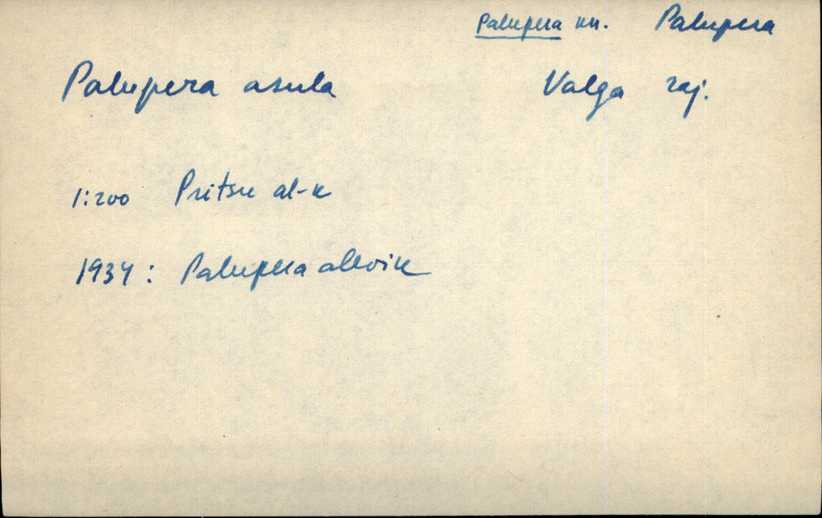 Palupera kn. Palupera
Palupera asula Valga raj.
1:200 Pritsu al-k
1934: Palupera alevik